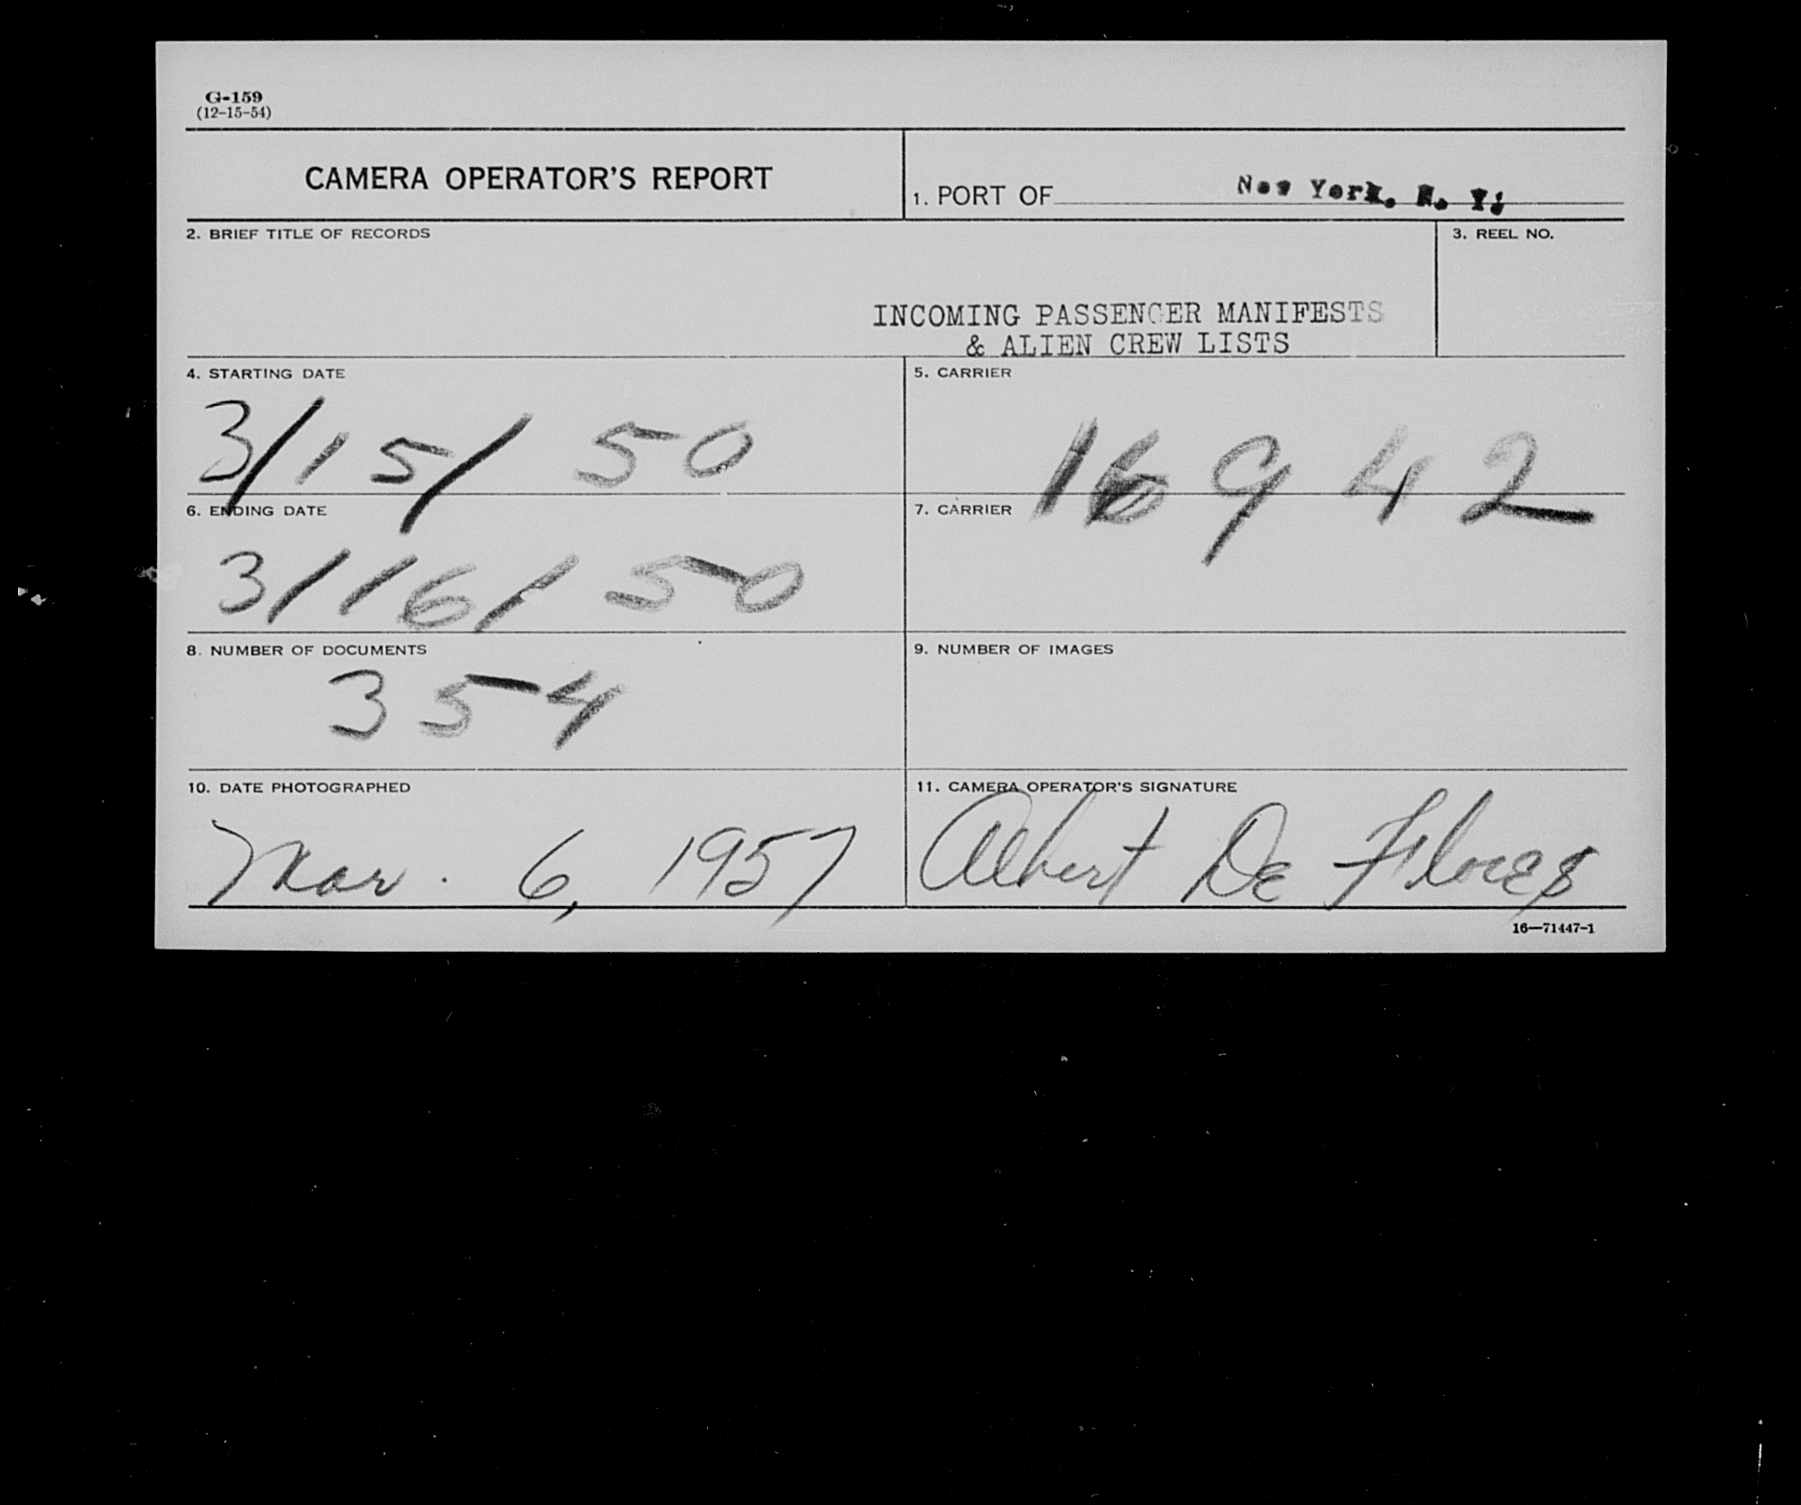 G-159
(12-15-54)
CAMERA OPERATOR'S REPORT
1. PORT OF New York, N. Y.
2. BRIEF TITLE OF RECORDS
3. REEL NO.
INCOMING PASSENGER MANIFESTS
& ALIEN CREW LISTS
4. STARTING DATE
3/15/50
5. CARRIER
16942
6. ENDING DATE
3/16/50
7. CARRIER
8. NUMBER OF DOCUMENTS
354
9. NUMBER OF IMAGES
10. DATE PHOTOGRAPHED
Mar. 6, 1957
11. CAMERA OPERATOR'S SIGNATURE
Albert De Flores
16-71447-1